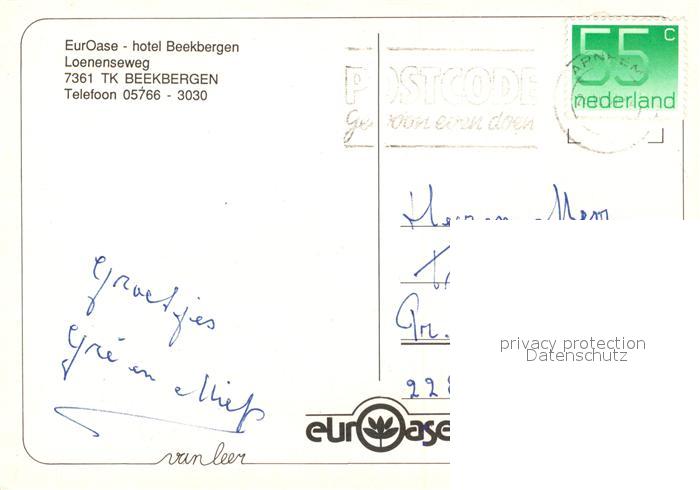 EurOase - hotel Beekbergen
Loenenseweg
7361 TK BEEKBERGEN
Telefoon 05766 - 3030
POSTCODE
Gewoon even doen
ARNHEM
55 c
nederland
Groetjes
Gré en Miep
van leer
Heer en Mevr
Gr.
22
privacy protection
Datenschutz
eurOase